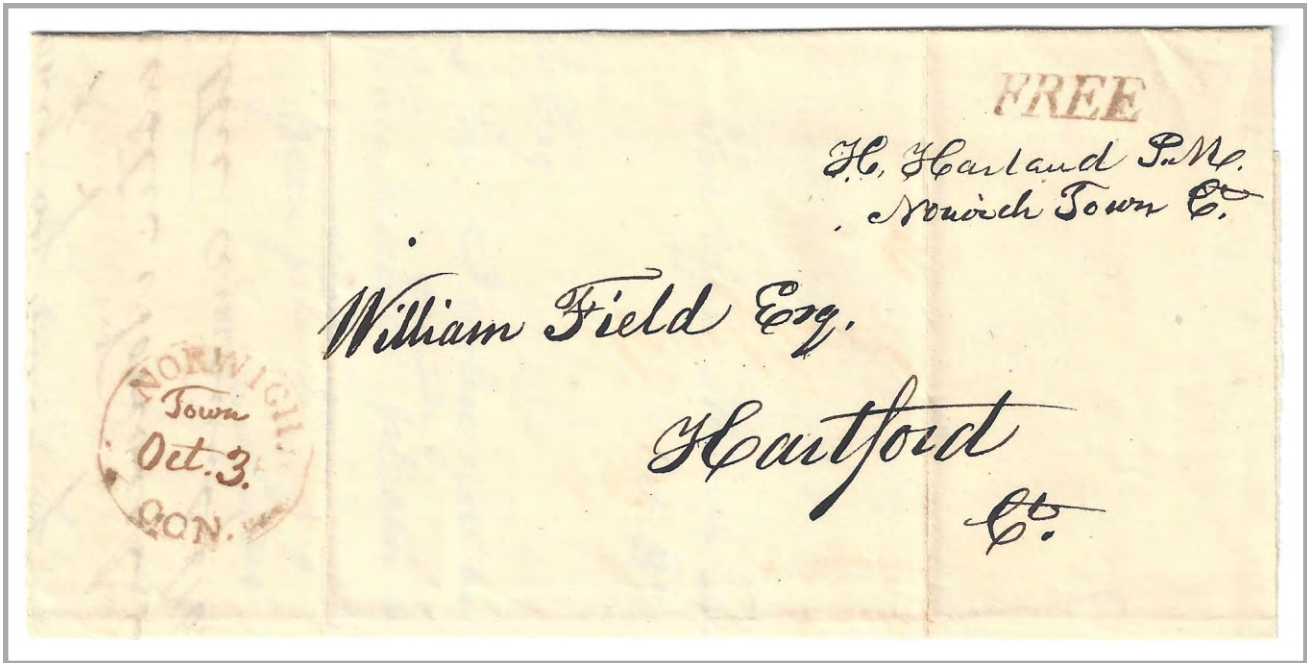 FREE
H. Harland P.M.
Norwich Town Ct.
William Field Esq.
Hartford
Ct.
NORWICH.
Town
Oct. 3.
CON.